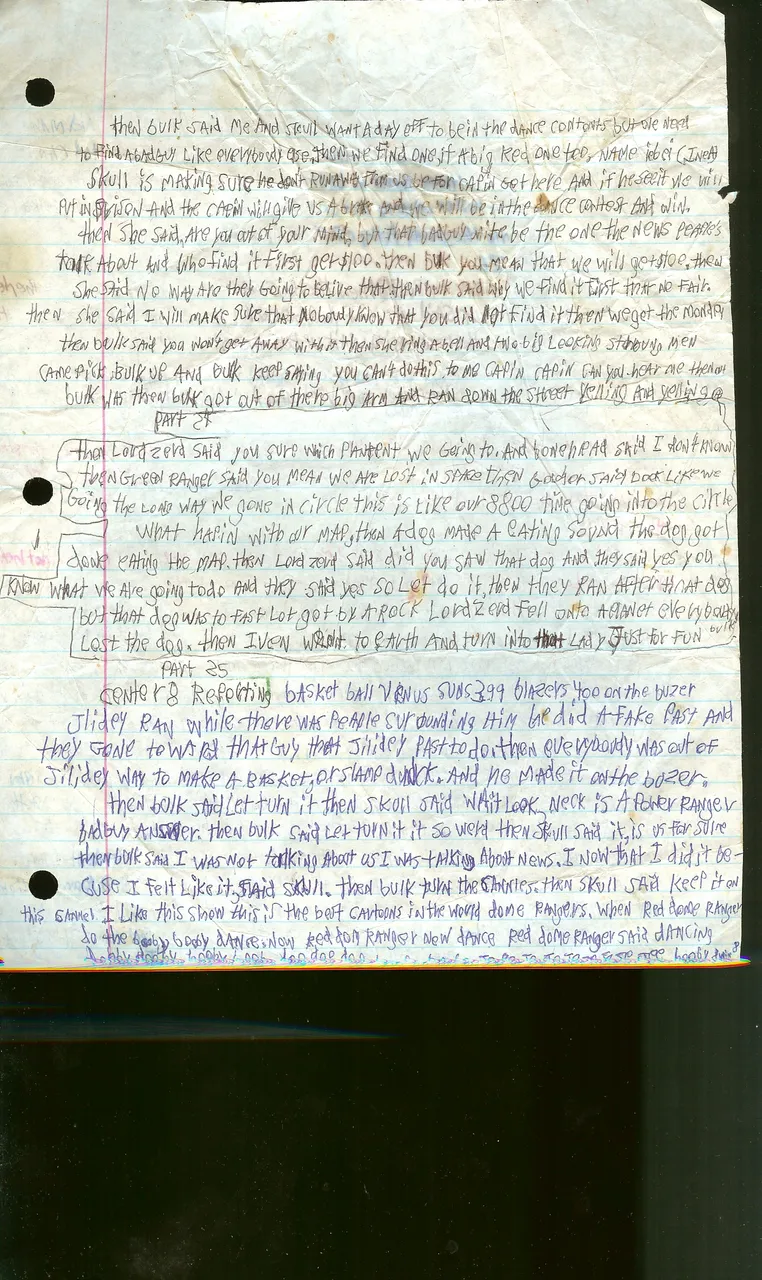 then bulk said me and skull want a day off to be in the dance contents but we need
to find a badguy like everybody else, then we find one, if a big Red one too, name
Skull is making sure he dont runaway from us be for capin get here and if he see it we will
put in prison and the capin will give us a brake and we will be in the dance contest and win.
then she said, are you out of your mind, but that badguy be the one the news people's
talk about and who find it first get $100. then bulk you mean that we will get $100. then
she said no way are they going to belive that then bulk said why we find it first that no fair.
then she said I will make sure that nobody know that you did not find it then we get the
then bulk said you won't get away with it then she ring a bell and two big looking men
came pick bulk up and bulk keep saying you can't do this to me capin capin can you hear me then
bulk was then bulk got out of there big arm and ran down the street yelling and yelling
Part
then Lordzerd said you sure wich we going to. And bonehead said I don't know
then Green Ranger said you mean we are lost in space then said look like we
Going the long way we gone in circle this is like our 8800 time going into the circle
What hapin with our map, then a dog made a eating sound the dog got
done eating the map. then Lord zerd said did you saw that dog and they said yes you
know what we are going to do and they said yes so let do it, then they ran after that dog
but that dog was to fast got by a rock Lordzerd fell onto a planet everybody
Lost the dog. then to earth and turn into that lady Just for fun
Part 25
center 8 Repeting basket ball suns 399 blazers 400 on the buzer
Jlidey ran while there was people surounding him he did a fake past and
they gone toward that guy that Jlidey past to do. then everybody was out of
Jilidey way to make a basket, or slame dunck. And he made it on the buzer.
then bulk said Let turn it then skull said wait look neck is a power ranger
badguy. then bulk said Let turn it it so werd then skull said it is us for sure
then bulk said I was not talking about us I was talking about news. I now that I did it be-
cuse I felt like it, said skull. then bulk turn the cannles. then skull said keep it on
this cannel I like this show this is the best cartoons in the world dome rangers. When Red dome ranger
do the booby booby dance. now Red dom ranger new dance Red dome ranger said dancing